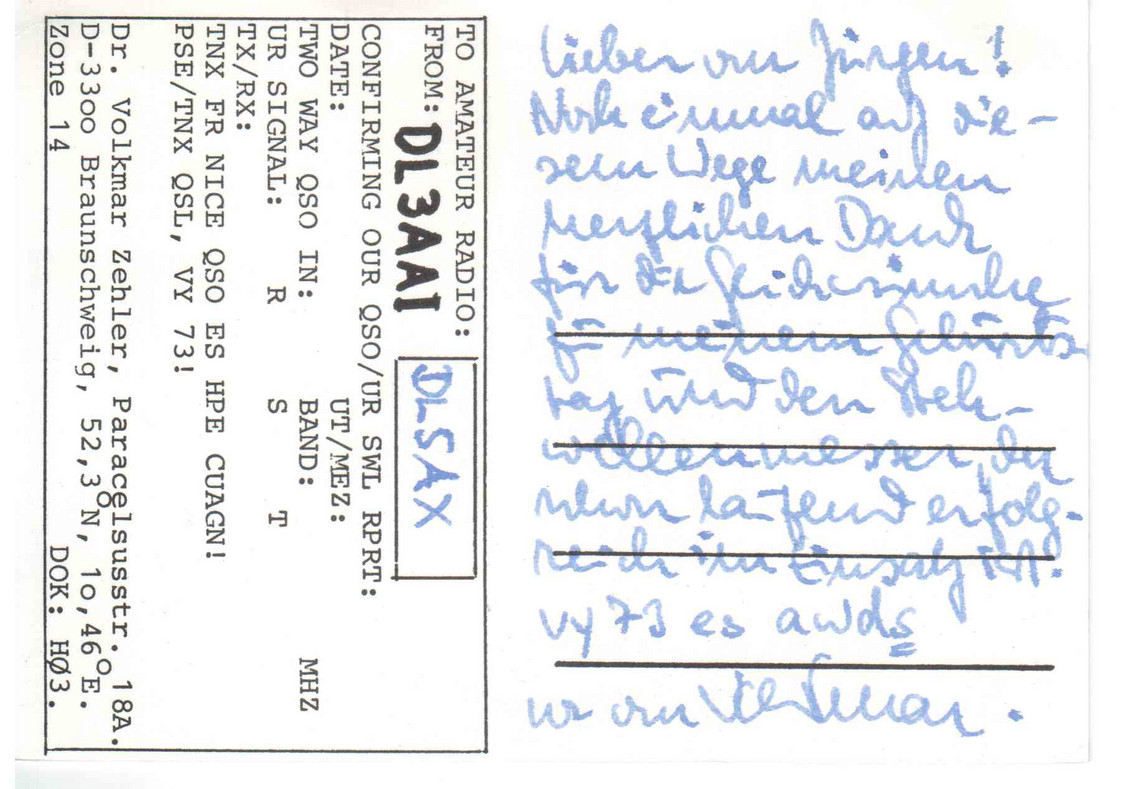 TO AMATEUR RADIO: DL5AX
FROM: DL3AAI
CONFIRMING OUR QSO/UR SWL RPRT:
DATE: UT/MEZ:
TWO WAY QSO IN: BAND: MHZ
UR SIGNAL: R S T
TX/RX:
TNX FR NICE QSO ES HPE CUAGN!
PSE/TNX QSL, VY 73!
Dr. Volkmar Zehler, Paracelsusstr. 18A.
D-33oo Braunschweig, 52,3°N, 1o,46°E.
Zone 14 DOK: HØ3.
Lieber om Jürgen!
Noch einmal auf die-
sem Wege meinen
herzlichen Dank
für die Glückwünsche
zu meinem Geburts-
tag und den Steh-
wellenmesser, der
schon laufend erfolg-
reich im Einsatz ist.
vy 73 es awds
ur om Volkmar.